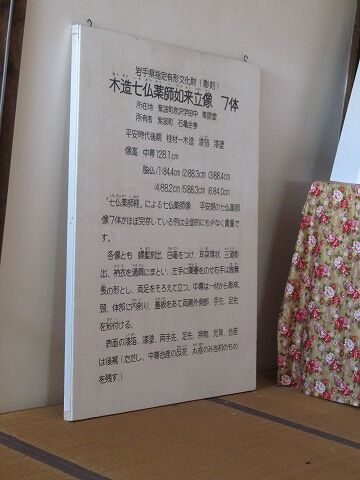 岩手県指定有形文化財(彫刻)
木造七仏薬師如来立像 7体
所在地 紫波町赤沢字田中 薬師堂
所有者 紫波町 石亀全孝
平安時代後期 桂材一木造 漆箔 漆塗
像高 中尊128.1cm
脇仏(1)84.4cm (2)88.3cm (3)88.4cm
(4)88.2cm (5)88.3cm (6)84.0cm
「七仏薬師経」による七仏薬師像 平安期の七仏薬師
像7体がほぼ完存している例は全国的にも少なく貴重で
す。
各像とも 螺髪刻出、白毫をつけ、耳朶環状、三道彫
出、衲衣を通肩にまとい、左手に薬壷をのせ右手は施無
畏の形とし、両足をそろえて立つ、中尊は一材から彫成、
頭、体部に内刳り、蓋板をあて両肩外側部、手先、足先
を矧付ける。
表面の漆箔、漆塗、両手先、足先、持物、光背、台座
は後補(ただし、中尊台座の反花、丸框のみ当初のもの
を残す。)